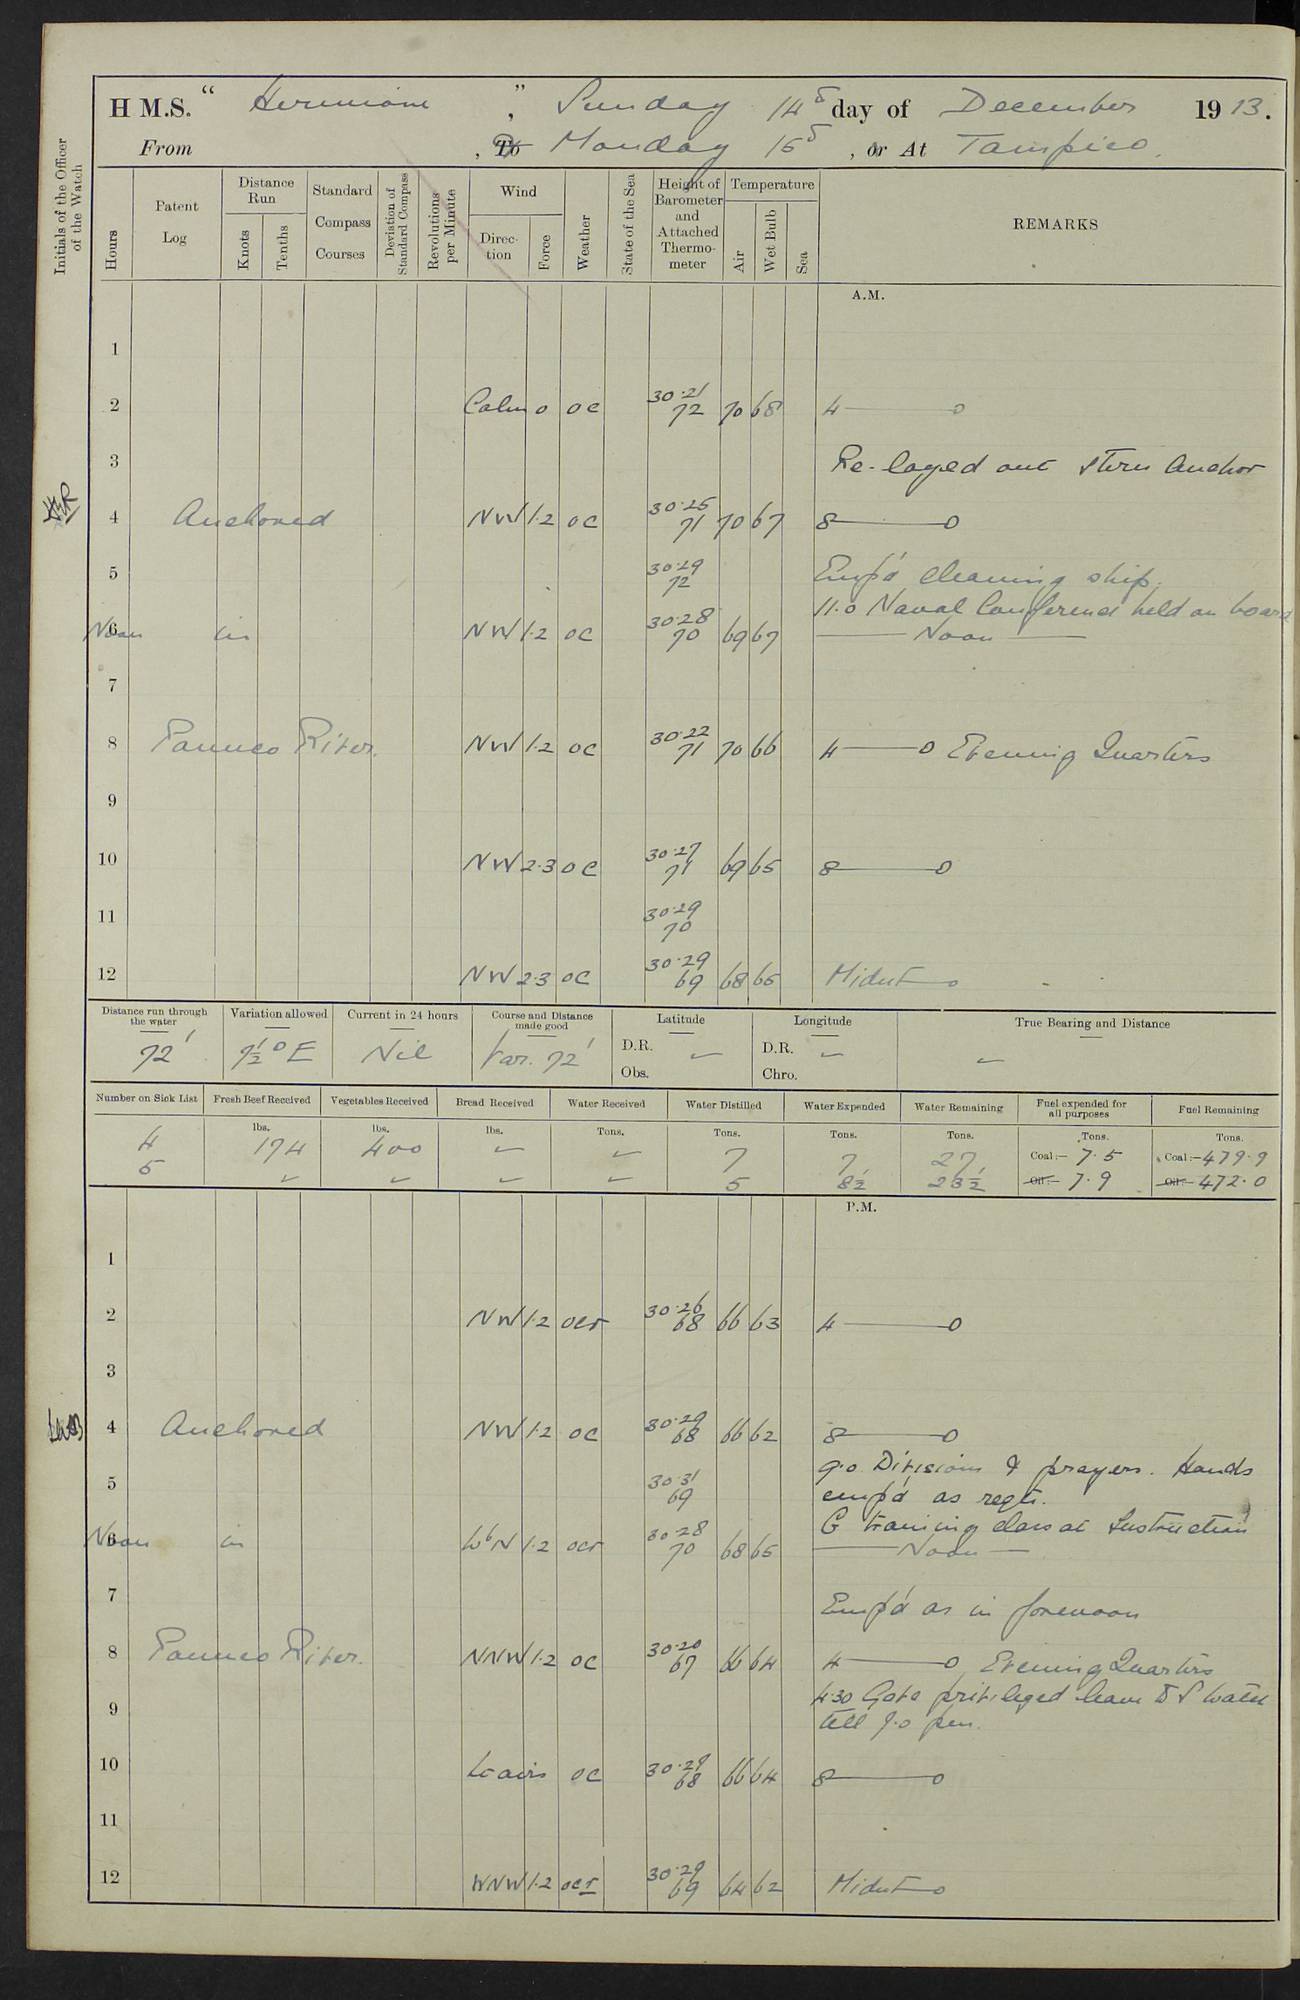 H.M.S. "Hermione", Sunday 14th day of December 1913.
From , To Monday 15th , or At Tampico.
Initials of the Officer of the Watch
Hours
Patent Log
Distance Run
Knots
Tenths
Standard Compass Courses
Deviation of Standard Compass
Revolutions per Minute
Wind
Direction
Force
Weather
State of the Sea
Height of Barometer and Attached Thermometer
Temperature
Air
Wet Bulb
Sea
REMARKS
A.M.
1
2 Calm 0 oc 30.21 72 70 68 4
3 Re-layed out stern anchor
4 Anchored NW 1.2 oc 30.25 71 70 67 8
5 30.29 72 Emp'd cleaning ship.
11.0 Naval Conference held on board
6 Noon in NW 1.2 oc 30.28 70 69 67 Noon
7
8 Panuco River. NW 1.2 oc 30.22 71 70 66 4 Evening Quarters
9
10 NW 2.3 oc 30.27 71 69 65 8
11 30.29 70
12 NW 2.3 oc 30.29 69 68 65 Midnt
Distance run through the water
Variation allowed
Current in 24 hours
Course and Distance made good
Latitude
Longitude
True Bearing and Distance
72' 7½° E Nil Var. 72' D.R. ✓ D.R. ✓ ✓
Obs. Chro.
Number on Sick List
Fresh Beef Received
Vegetables Received
Bread Received
Water Received
Water Distilled
Water Expended
Water Remaining
Fuel expended for all purposes
Fuel Remaining
lbs. lbs. lbs. Tons. Tons. Tons. Tons. Tons. Tons.
4 174 400 ✓ ✓ 7 7 27 Coal:- 7.5 Coal:- 479.9
5 ✓ ✓ ✓ ✓ 5 8½ 23½ Oil:- 7.9 Oil:- 472.0
P.M.
1
2 NW 1.2 ocr 30.26 68 66 63 4
3
4 Anchored NW 1.2 oc 30.29 68 66 62 8
9.0 Divisions & prayers. Hands
5 30.31 69 emp'd as reqte.
G training class at Instruction
6 Noon in WbN 1.2 ocr 30.28 70 68 65 Noon
7 Emp'd as in forenoon
8 Panuco River. NNW 1.2 oc 30.20 67 66 64 4 Evening Quarters
4.30 Gave privileged leave to S watch
9 till 7.0 pm.
10 Lt airs oc 30.28 68 66 64 8
11
12 WNW 1.2 ocr 30.29 69 64 62 Midnt